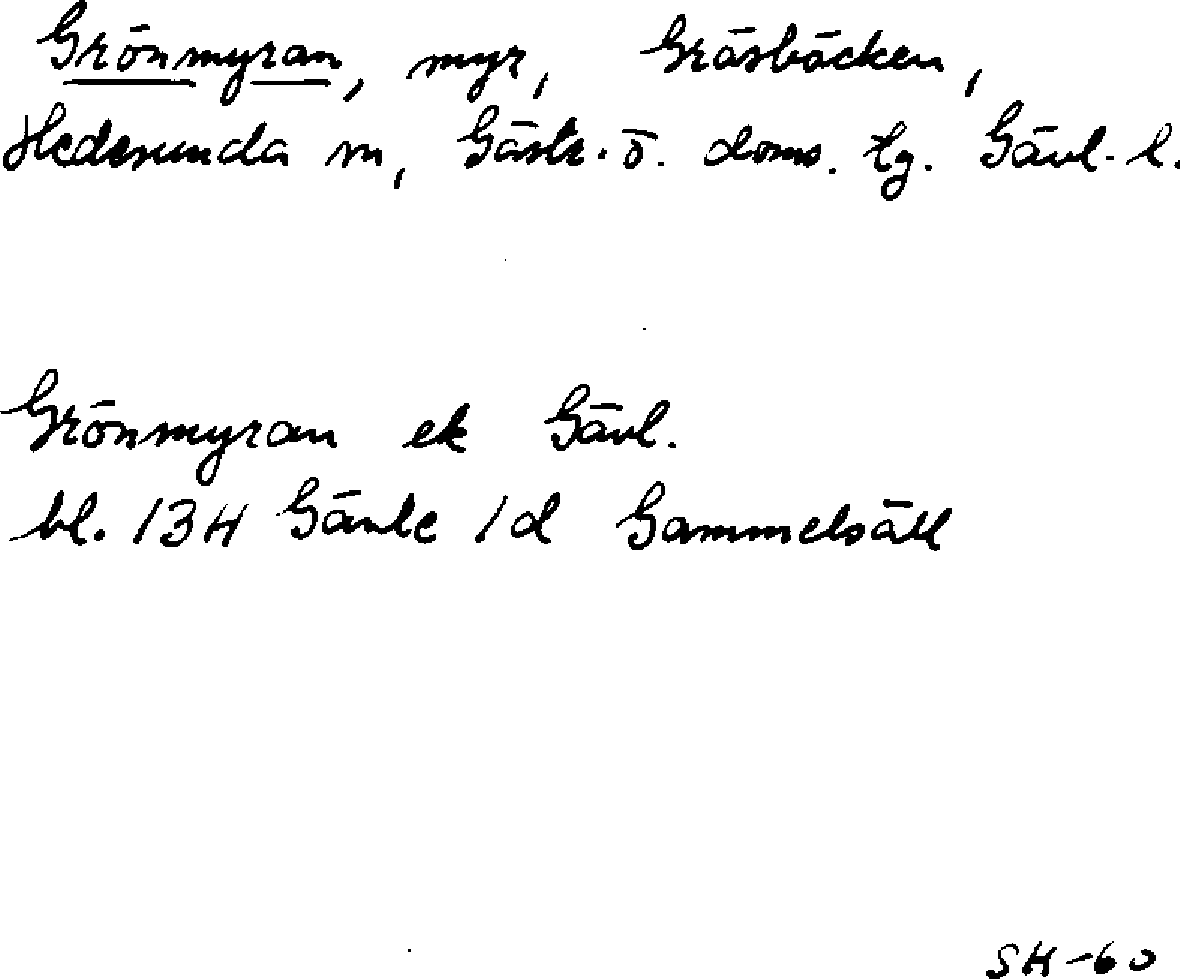 Grönmyran, myr, Gräsbäcken,
Hedesunda sn, Gästr. ö. doms. tg. Gävl. l.
Grönmyran ek Gävl.
bl. 13H Gävle 1d Gammelsäll
SH-60